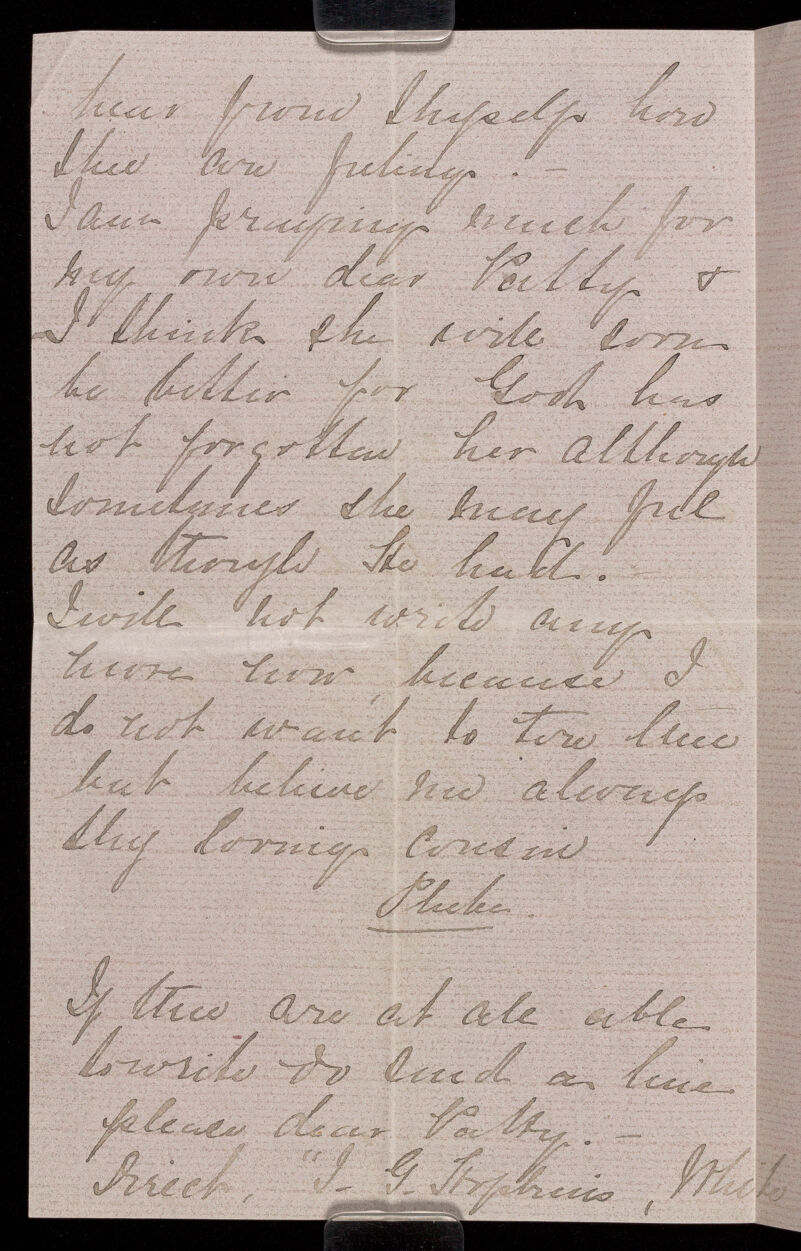 hear from Thyself how
thee are feeling. -
I am praying much for
my own dear Patty &
I think she will soon
be better for God has
not forgotten her although
sometimes she may feel
as though He had. -
I will not write any
more now, because I
do not want to tire thee
but believe me always
thy loving cousin
Phebe.
If thee are at all able
to write do send a line
please dear Patty. -
Direct, "I- G- Hopkins, White